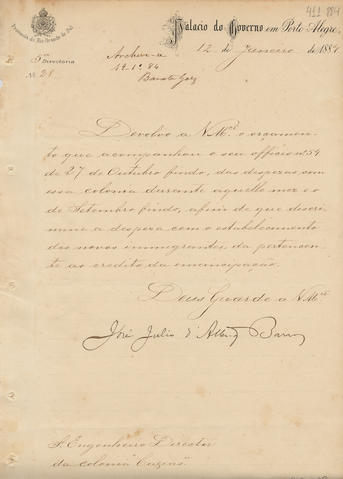 Provincia do Rio Grande do Sul
Palacio do Governo em Porto Alegre,
12 de Janeiro de 1884
5ª Directoria
Nº 28
Archive-se
19-1º-84
Devolvo a V. Mcê o orçamen-
to que acompanhou o seu officio nº 54
de 27 de Outubro findo, das despezas com
essa colonia durante aquelle mez e o
de Setembro findo, afim de que discri-
mine a despeza com o estabelecimento
dos novos immigrantes da pertencen-
te ao credito da emancipação.
Deus Guarde a V. Mcê
José Julio d'Albuq. Barros
S. Engenheiro Director
da colonia Caxias